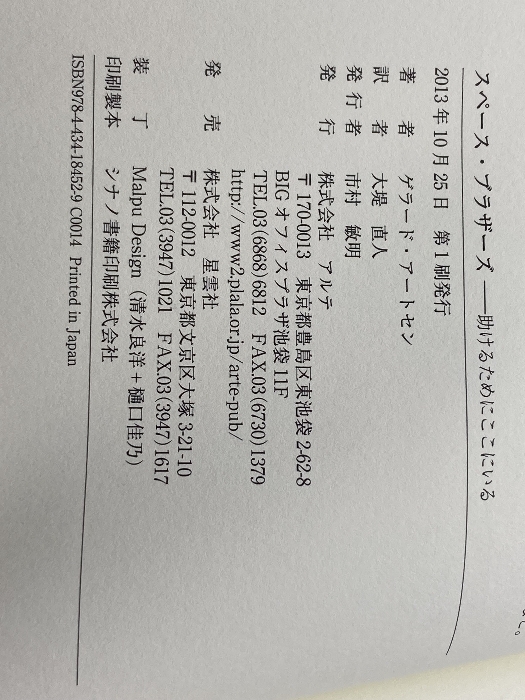 スペース・ブラザーズ ――助けるためにここにいる
2013年10月25日　第1刷発行
著　者　ゲラード・アートセン
訳　者　大堤　直人
発行者　市村　敏明
発　行　株式会社　アルテ
〒170-0013　東京都豊島区東池袋2-62-8
BIGオフィスプラザ池袋11F
TEL.03(6868)6812　FAX.03(6730)1379
http://www2.plala.or.jp/arte-pub/
発　売　株式会社　星雲社
〒112-0012　東京都文京区大塚3-21-10
TEL.03(3947)1021　FAX.03(3947)1617
装　丁　Malpu Design（清水良洋＋樋口佳乃）
印刷製本　シナノ書籍印刷株式会社
ISBN978-4-434-18452-9 C0014 Printed in Japan